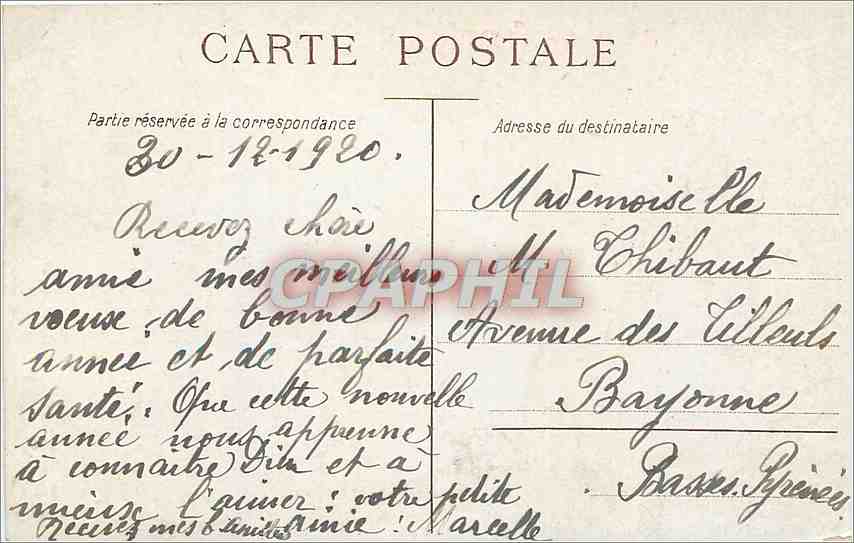 CARTE POSTALE
Partie réservée à la correspondance
30-12-1920.
Recevez chère
amie mes meilleurs
voeux de bonne
année et de parfaite
santé. Que cette nouvelle
année nous apprenne
à connaître Dieu et à
mieux l'aimer: votre petite
amie: Marcelle
Recevez mes
Adresse du destinataire
Mademoiselle
M Thibaut
Avenue des Tilleuls
Bayonne
Basses-Pyrénées
CPAPHIL